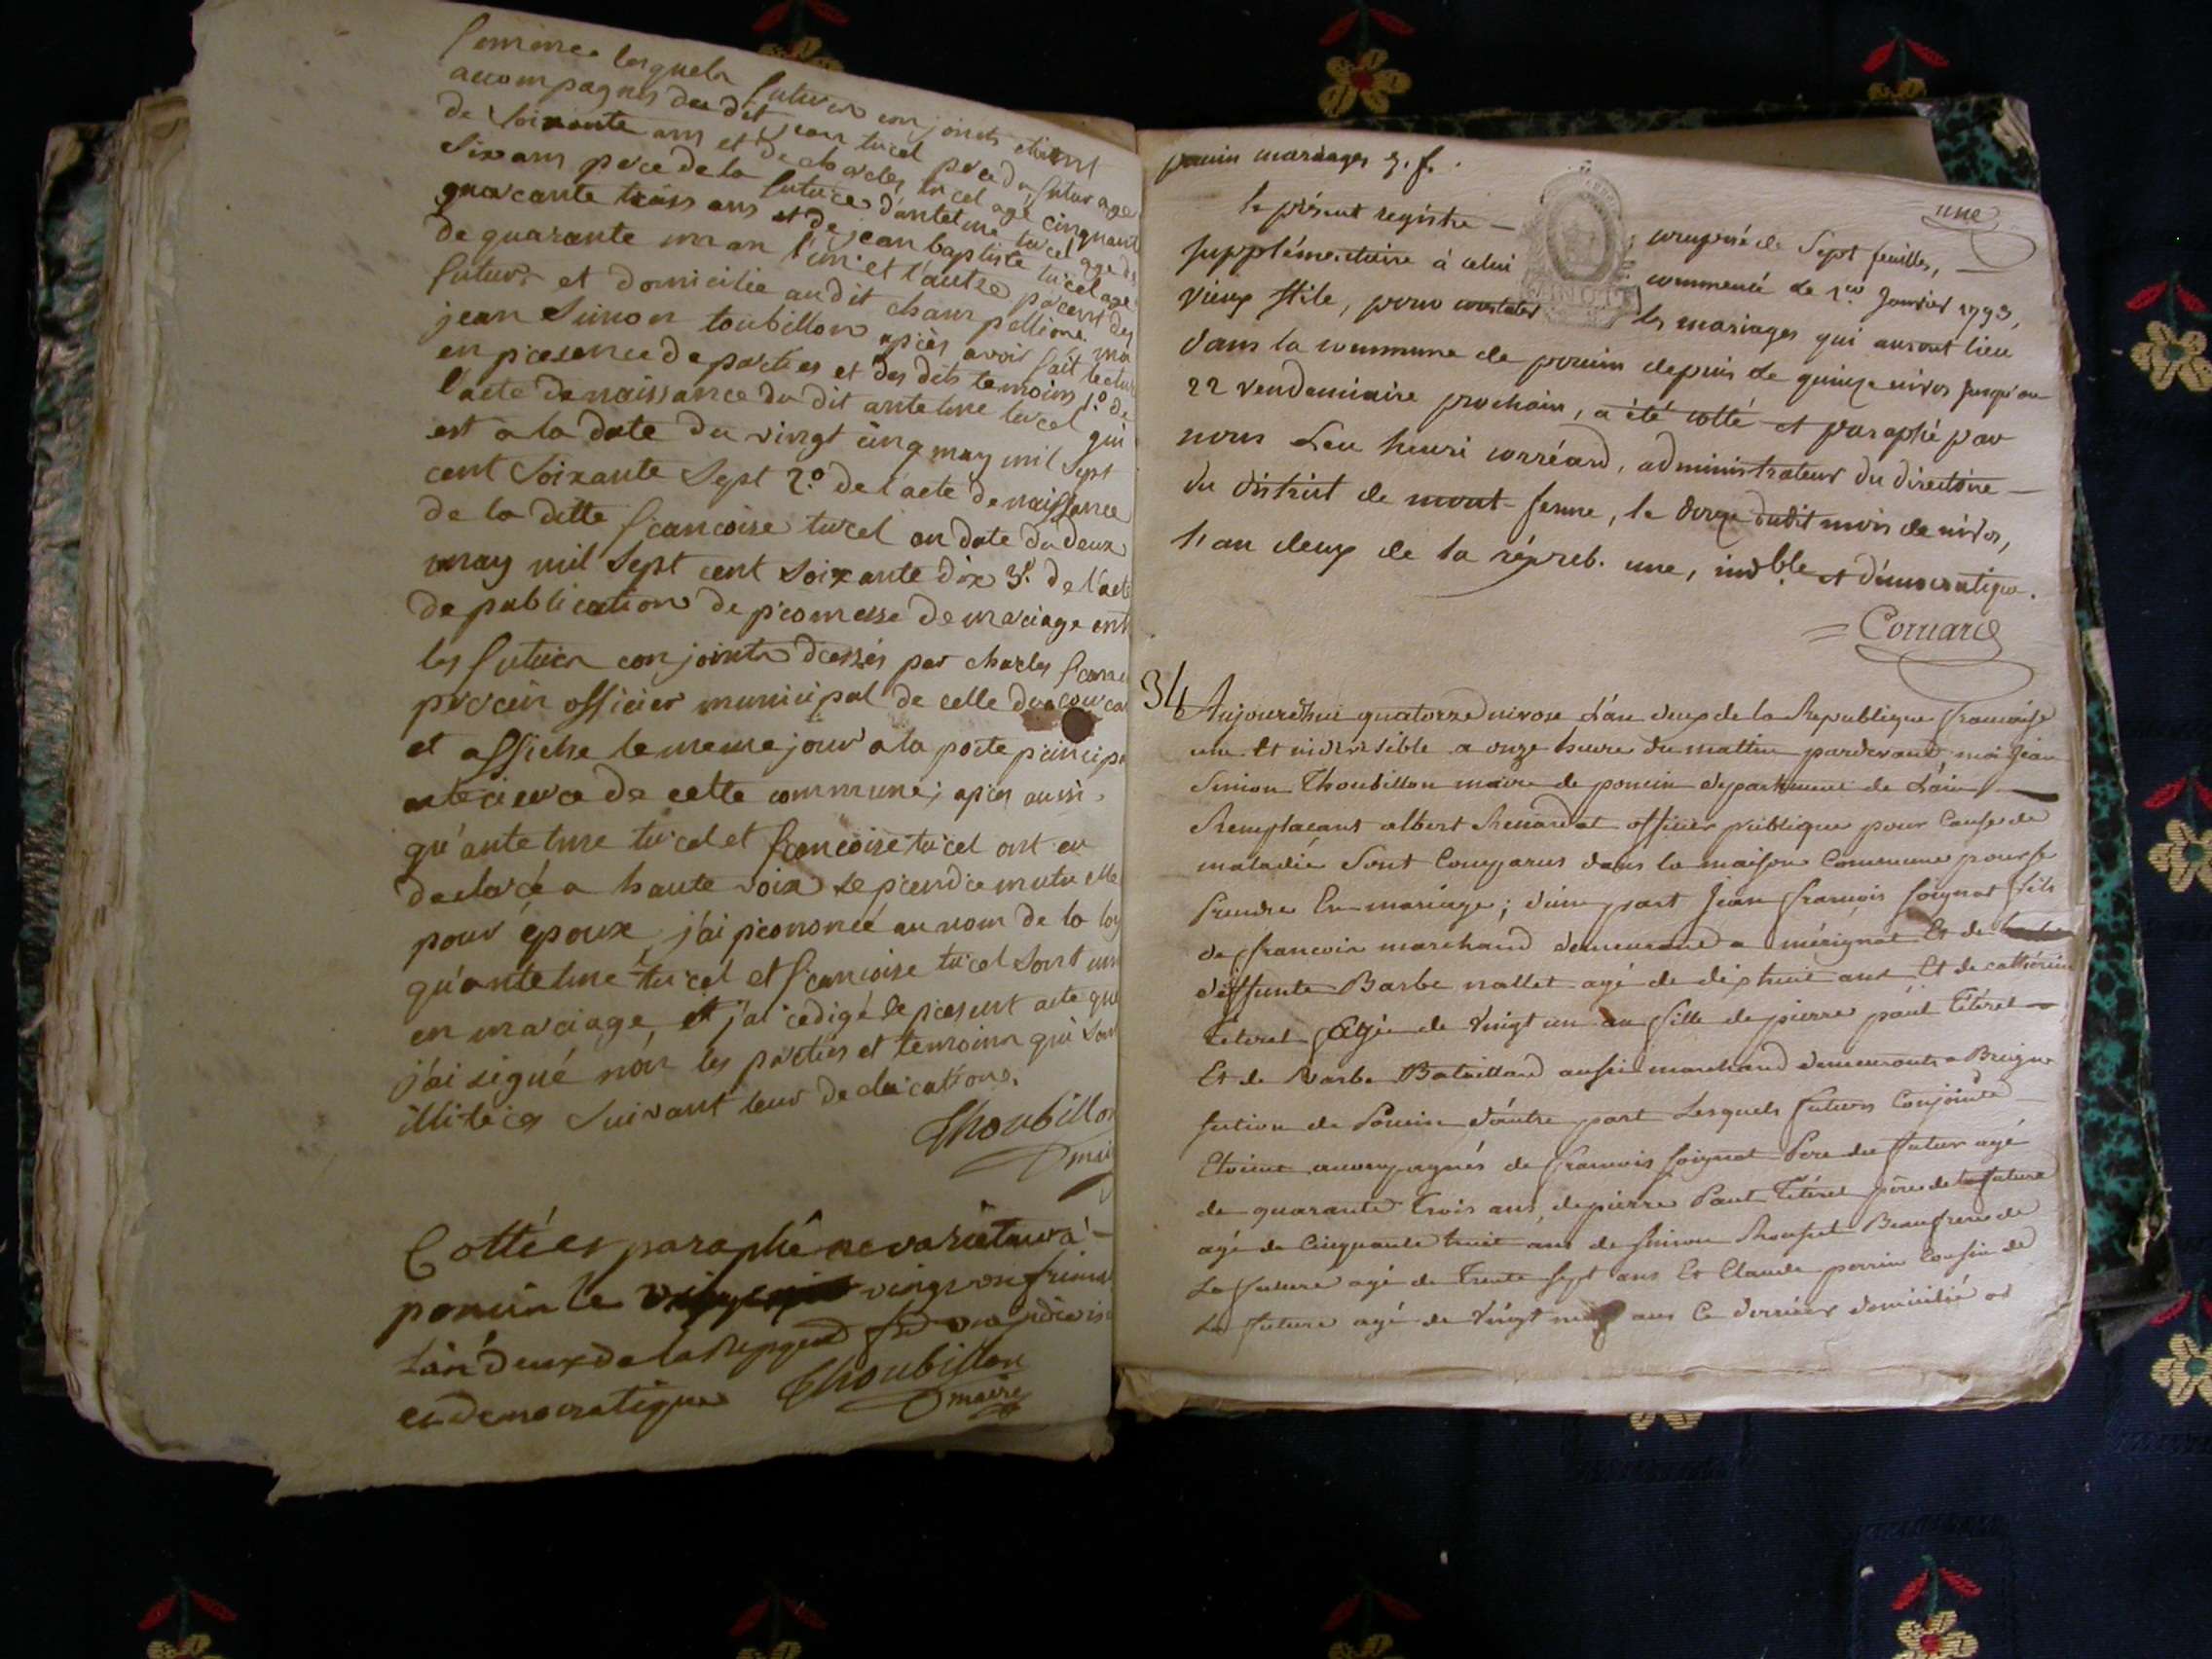 femmes lesquels futurs conjoints etoient
accompagnés du dit jean tircel pere du futur age
de soixante ans et de charles tircel age cinquant
six ans pere de la future d'antelme tircel age de
quarante trois ans et de jean baptiste tircel age
de quarante un an l'un et l'autre parent des
futurs et domicilie audit champollimon moi
jean Simon toubillon apres avoir fait lectur
en presence de parties et des dits temoins 1.o de
l'acte de naissance du dit antelme tircel qui
est a la date du vingt cinq may mil sept
cent soixante sept 2.o de l'acte de naissance
de la ditte francoise tircel en date du deux
may mil sept cent soixante dix 3.o de l'acte
de publication de promesse de mariage ent
les futurs conjoints dressés par charles
officier municipal de celle du
et affiche le meme jour a la porte principa
de cette commune; apres aussi
qu'antelme tircel et francoise tircel ont eu
declaré a haute voix se prendre mutuelle
pour époux, j'ai prononcé au nom de la loy
qu'antelme tircel et francoise tircel sont uni
en mariage, et j'ai redigé le present acte que
j'ai signé non les parties et temoins qui sont
illiteres suivant leur declarations.
Thoubillon
mair
Cotté et paraphé ne varietur a
poncin le vingt un frima
L'an deux de la Repque
et democratique Thoubillon
maire
poncin mariages 7. f.
une
le présent registre — composé de Sept feuilles, —
supplémentaire à celui commencé le 1.er Janvier 1793,
vieux stile, pour constater les mariages qui auront lieu
dans la commune de poncin depuis le quinze nivos jusqu'au
22 vendemiaire prochain, a été cotté et paraphé par
nous Leu henri corréard, administrateur du directoire —
du district de mont-ferme, le douze dudit mois de nivos,
l'an deux de la répub. une, indble et démocratique.
Corréard
34 Aujourd'hui quatorze nivose L'an deux de la Republique francaise
une Et indivisible a onze heure du mattin pardevant moi Jean
Simion Thoubillon maire de poncin departement de L'ain
Remplacant albert Renard at officier publique pour Cause de
maladie Sont Comparus dans la maison Commune pour se
prendre En mariage; d'une part Jean francois Soignat fils
de francois marchand demeurand a mérignat Et de
deffunte Barbe nallet agé de dix huit ans Et de cathérine
Téteret Agée de vingt un an fille de pierre paul Téteret
Et de Barbe Bataillard aussi marchand demeurants a Breigne
section de Poncin d'autre part Lesquels futurs Conjoints
Etoient accompagnés de francois soignat Pere du futur agé
de quarante trois ans, de pierre Paul Téteret père de la future
agé de Cinquante huit ans de simon Rousset Beaufrere de
La future agé de Trente sept ans Et Claude perrin Cousin de
La future agé de vingt neuf ans Ce dernier domicilié a